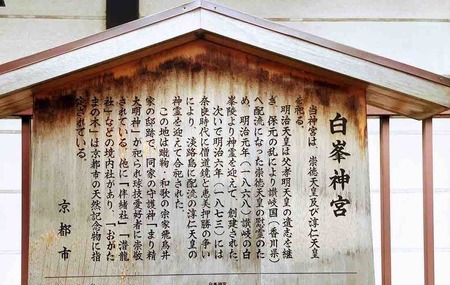 白峯神宮
当神宮は、崇徳天皇及び淳仁天皇
を祀る。
明治天皇は父孝明天皇の遺志を継
ぎ、保元の乱により讃岐国（香川県）
へ配流になった崇徳天皇の慰霊のた
め、明治元年（一八六八）讃岐の白
峯陵より神霊を迎えて、創建された。
次いで明治六年（一八七三）には
奈良時代に僧道鏡と恵美押勝の争い
により、淡路島に配流の淳仁天皇の
神霊を迎えて合祀された。
この地は蹴鞠・和歌の宗家飛鳥井
家の邸跡で、同家の守護神「まり精
大明神」が祀られ球技愛好者に崇敬
されている。他に「伴緒社」「潜龍
社」などの境内社があり、「おがた
まの木」は京都市の天然記念物に指
定されている。
京都市